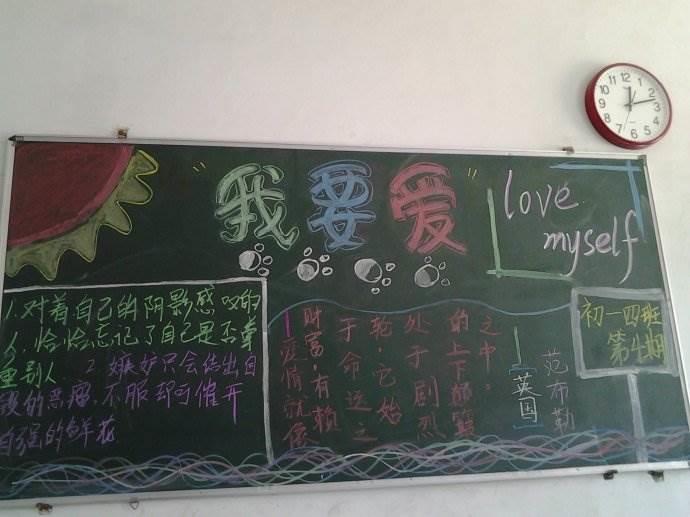 "我要爱"
love
myself
1.对着自己的阴影感叹的
人,恰恰忘记了自己是否尊
重别人 2 嫉妒只会结出自
的恶瘤,不服却可催开
自强的鲜花
爱情就像
财富,有赖
于命运之
轮,它始
处于剧烈
的上下颠簸
之中。
—[英国]
范布勒
初一四班
第4期
12
1
2
3
4
5
6
7
8
9
10
11